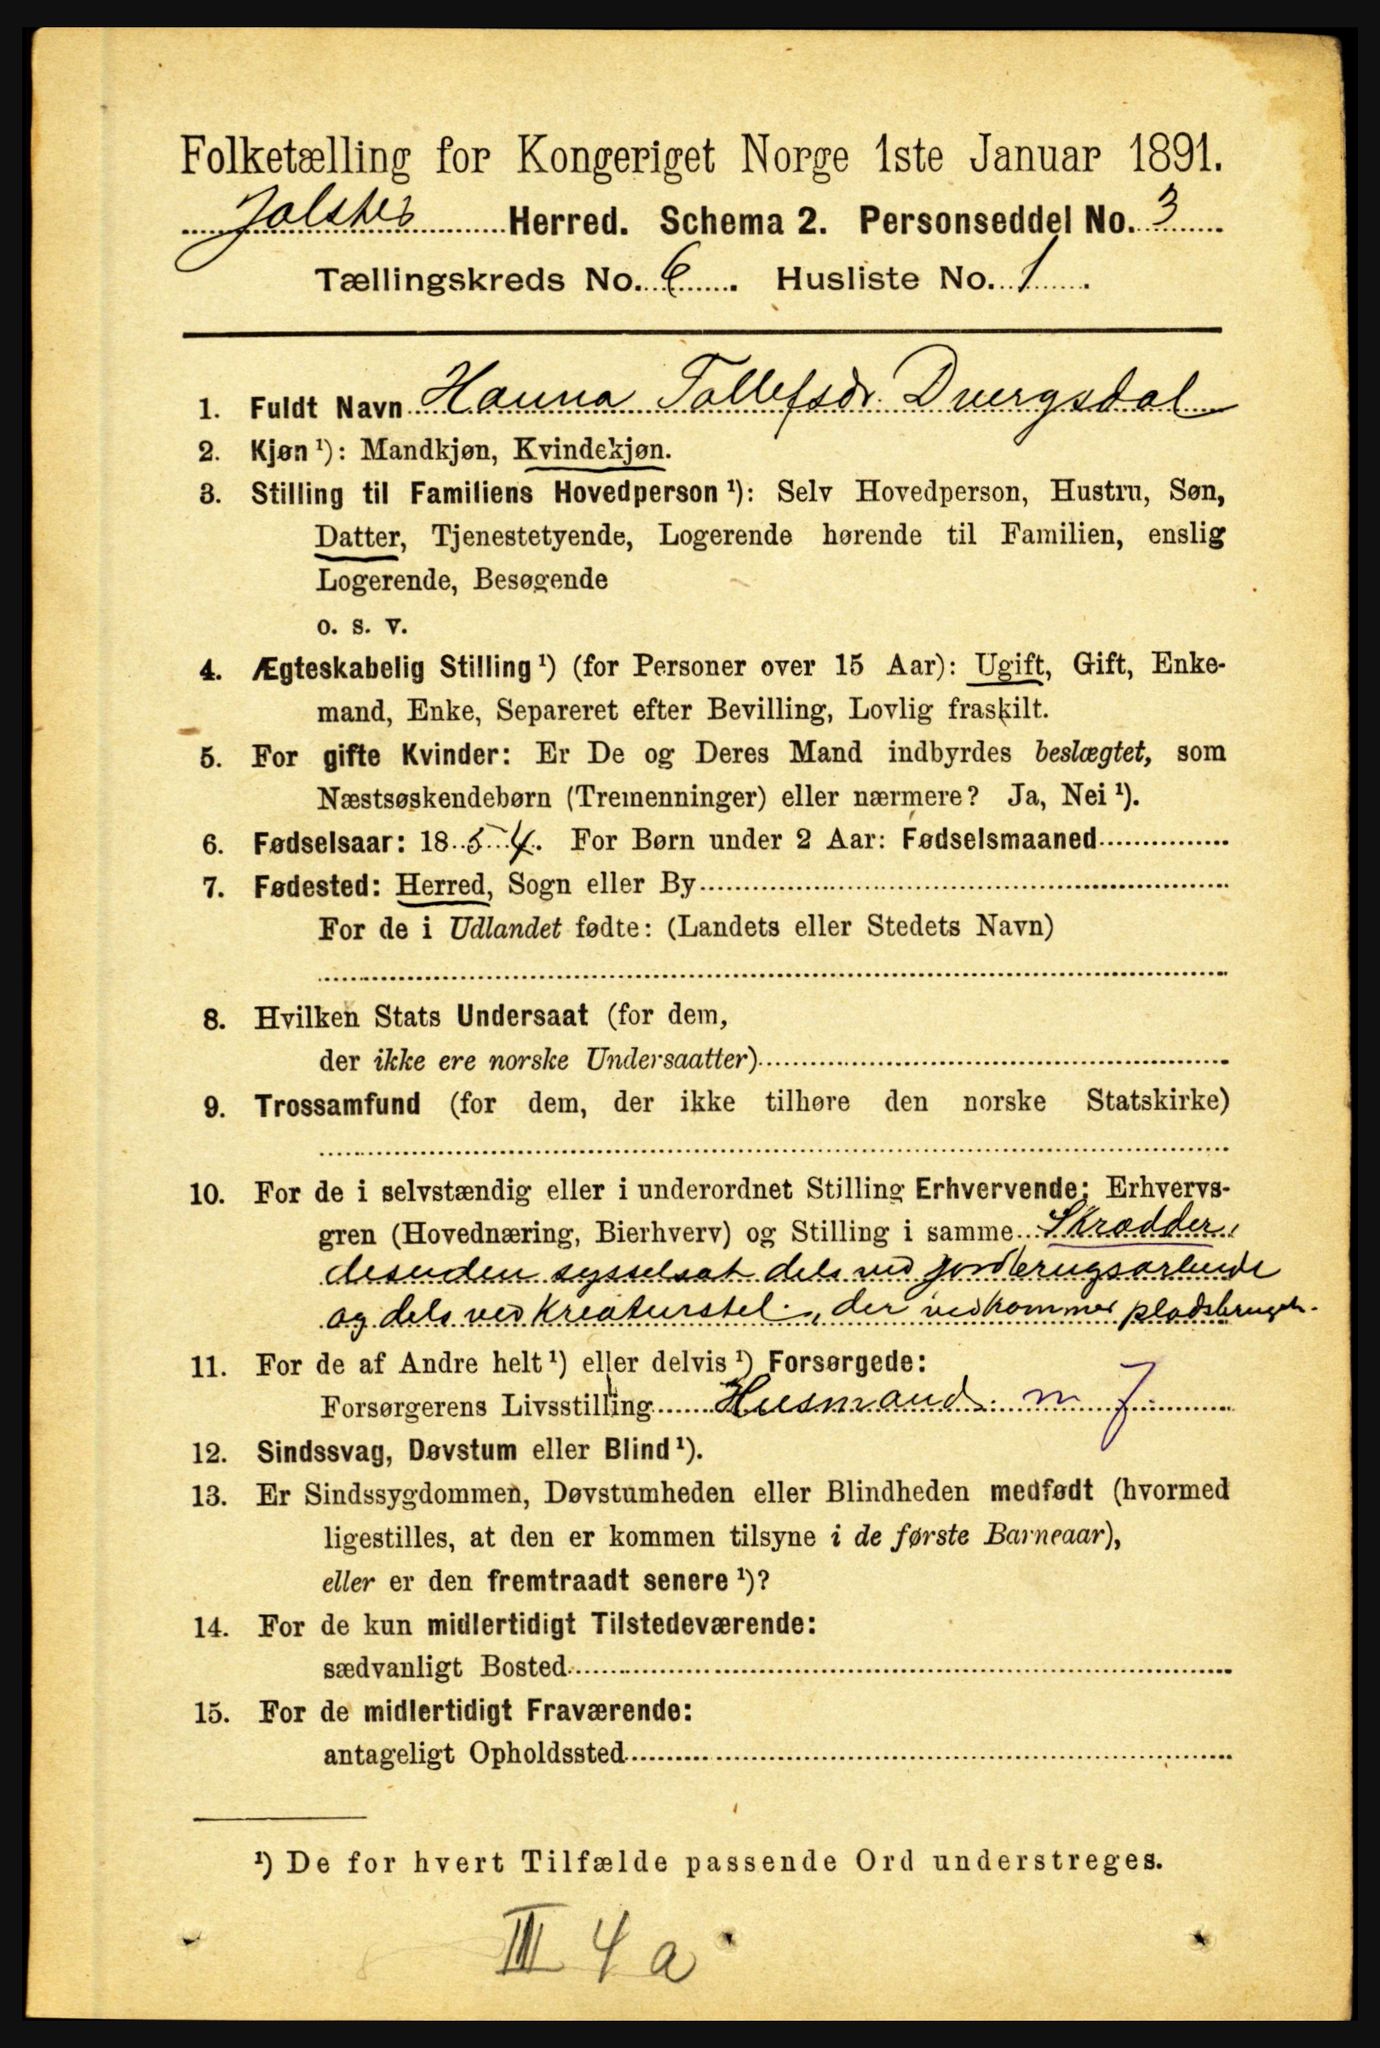 Folketælling for Kongeriget Norge 1ste Januar 1891.
Jølster Herred. Schema 2. Personseddel No. 3
Tællingskreds No. 6. Husliste No. 1.
1. Fuldt Navn Hanna Tollefsdr. Dvergsdal
2. Kjøn ¹): Mandkjøn, Kvindekjøn.
3. Stilling til Familiens Hovedperson ¹): Selv Hovedperson, Hustru, Søn,
Datter, Tjenestetyende, Logerende hørende til Familien, enslig
Logerende, Besøgende
o. s. v.
4. Ægteskabelig Stilling ¹) (for Personer over 15 Aar): Ugift, Gift, Enke-
mand, Enke, Separeret efter Bevilling, Lovlig fraskilt.
5. For gifte Kvinder: Er De og Deres Mand indbyrdes beslægtet, som
Næstsøskendebørn (Tremenninger) eller nærmere? Ja, Nei ¹).
6. Fødselsaar: 1854. For Børn under 2 Aar: Fødselsmaaned
7. Fødested: Herred, Sogn eller By
For de i Udlandet fødte: (Landets eller Stedets Navn)
8. Hvilken Stats Undersaat (for dem,
der ikke ere norske Undersaatter)
9. Trossamfund (for dem, der ikke tilhøre den norske Statskirke)
10. For de i selvstændig eller i underordnet Stilling Erhvervende: Erhvervs-
gren (Hovednæring, Bierhverv) og Stilling i samme Skrædder,
desuden sysselsat dels ved jordbrugsarbeide
og dels ved Kreaturstel, der vedkommer pladsbruget.
11. For de af Andre helt ¹) eller delvis ¹) Forsørgede:
Forsørgerens Livsstilling Husmand m J.
12. Sindssvag, Døvstum eller Blind ¹).
13. Er Sindssygdommen, Døvstumheden eller Blindheden medfødt (hvormed
ligestilles, at den er kommen tilsyne i de første Barneaar),
eller er den fremtraadt senere ¹)?
14. For de kun midlertidigt Tilstedeværende:
sædvanligt Bosted
15. For de midlertidigt Fraværende:
antageligt Opholdssted
¹) De for hvert Tilfælde passende Ord understreges.
III 4 a